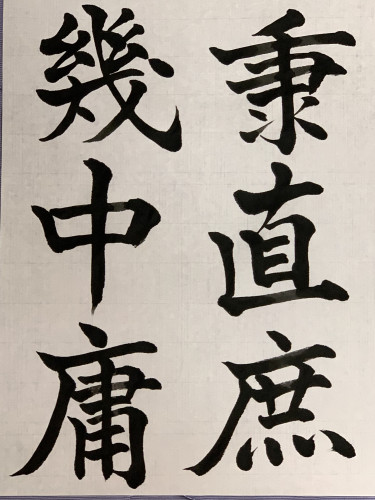 秉直庶
幾中庸